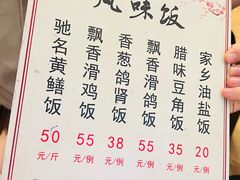 风味饭
家乡油盐饭
20
元/例
腊味豆角饭
35
元/例
飘香滑鸽饭
55
元/例
香葱鸽肾饭
38
元/例
飘香滑鸡饭
55
元/例
驰名黄鳝饭
50
元/斤